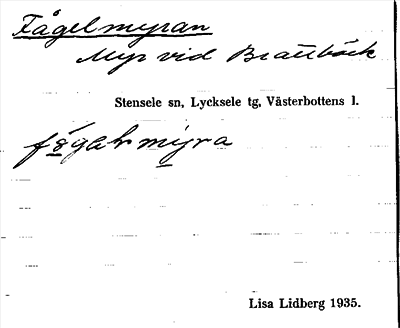 Fågelmyran
Myr vid Brattbäck
Stensele sn, Lycksele tg, Västerbottens l.
Lisa Lidberg 1935.